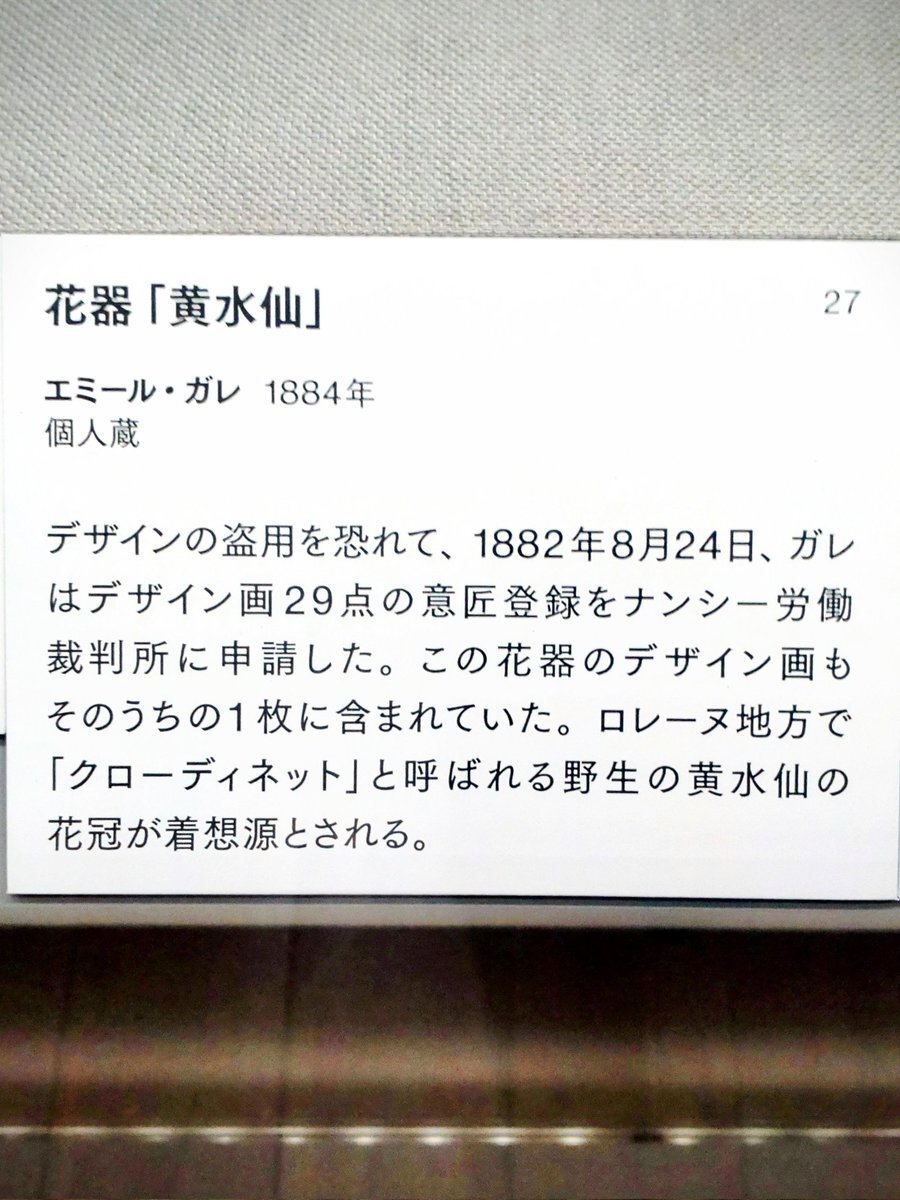 花器「黄水仙」 27
エミール・ガレ 1884年
個人蔵
デザインの盗用を恐れて、1882年8月24日、ガレ
はデザイン画29点の意匠登録をナンシー労働
裁判所に申請した。この花器のデザイン画も
そのうちの1枚に含まれていた。ロレーヌ地方で
「クローディネット」と呼ばれる野生の黄水仙の
花冠が着想源とされる。